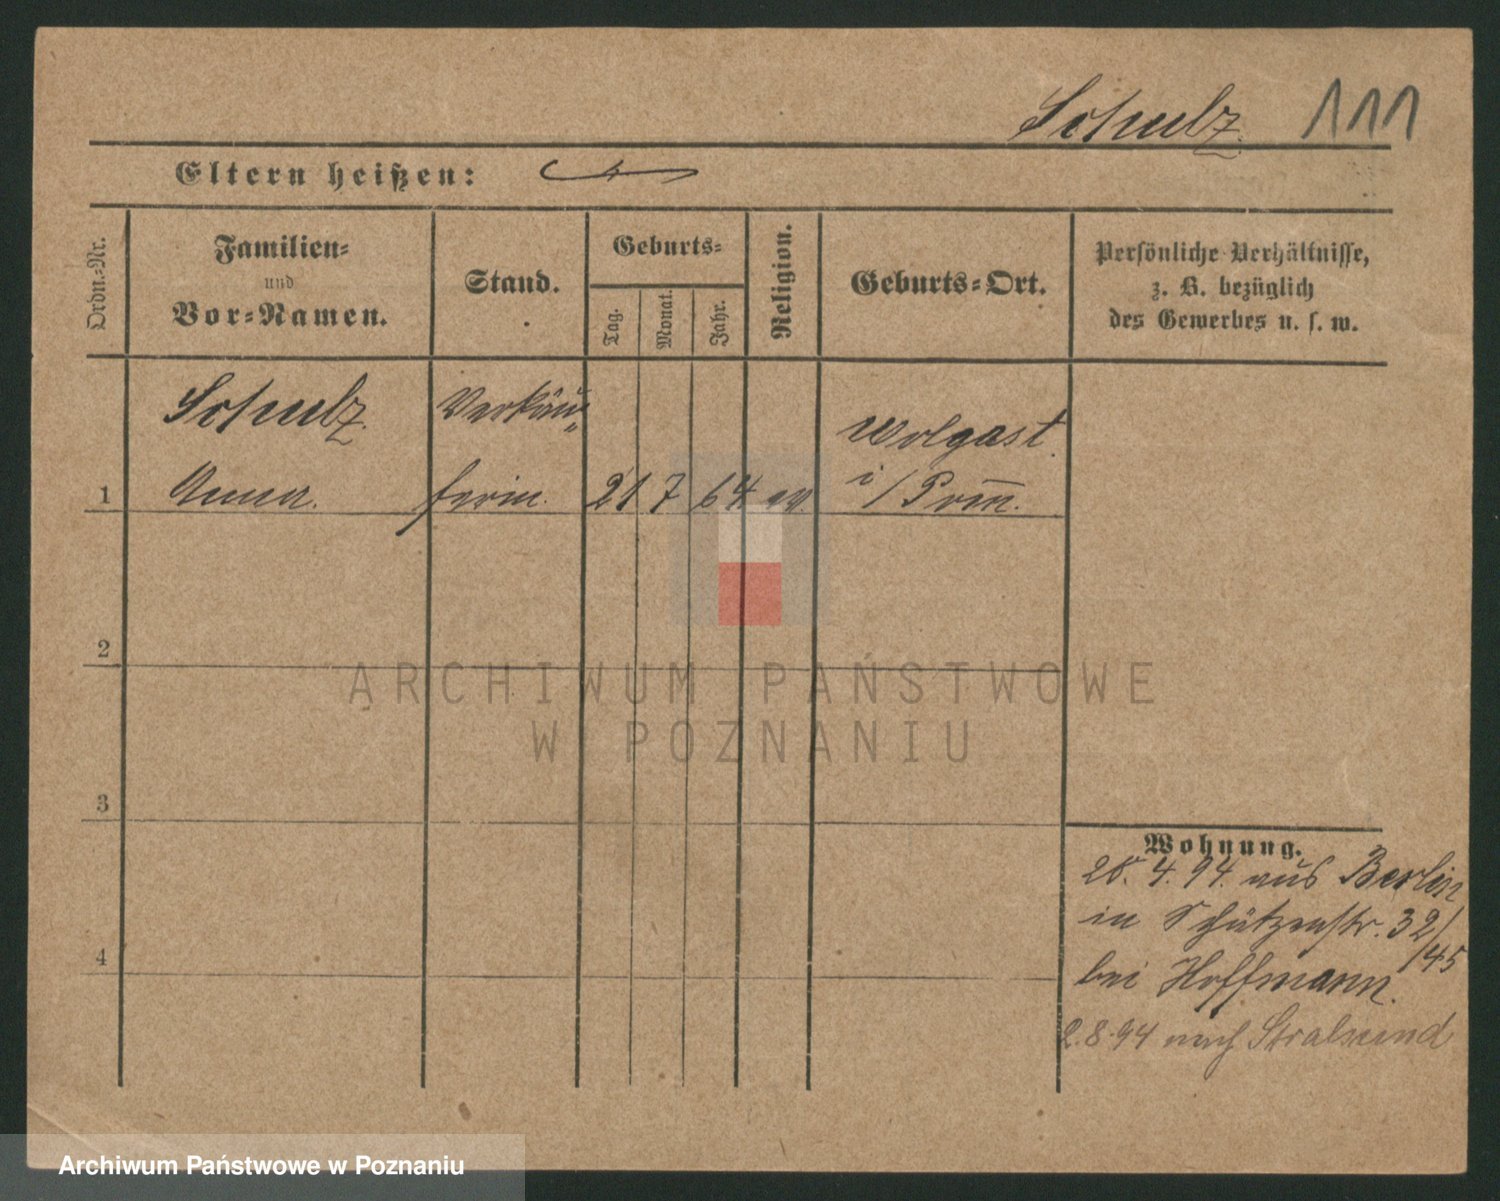 Schulz. 111
Eltern heißen:
Ordn.-Nr.
Familien-
und
Vor-Namen.
Stand.
Geburts-
Tag.
Monat.
Jahr.
Religion.
Geburts-Ort.
Persönliche Verhältnisse,
z. B. bezüglich
des Gewerbes u. s. w.
Schulz.
Verkäu-
Wolgast.
1 Anna. ferin. 21 7 64 ev. i/Pom̅.
2
3
4
ARCHIWUM PAŃSTWOWE
W POZNANIU
Wohnung.
4. 94. aus Berlin
in Schützenstr. 32/
/45
bei Hoffmann.
2.8.94 nach Stralsund
Archiwum Państwowe w Poznaniu